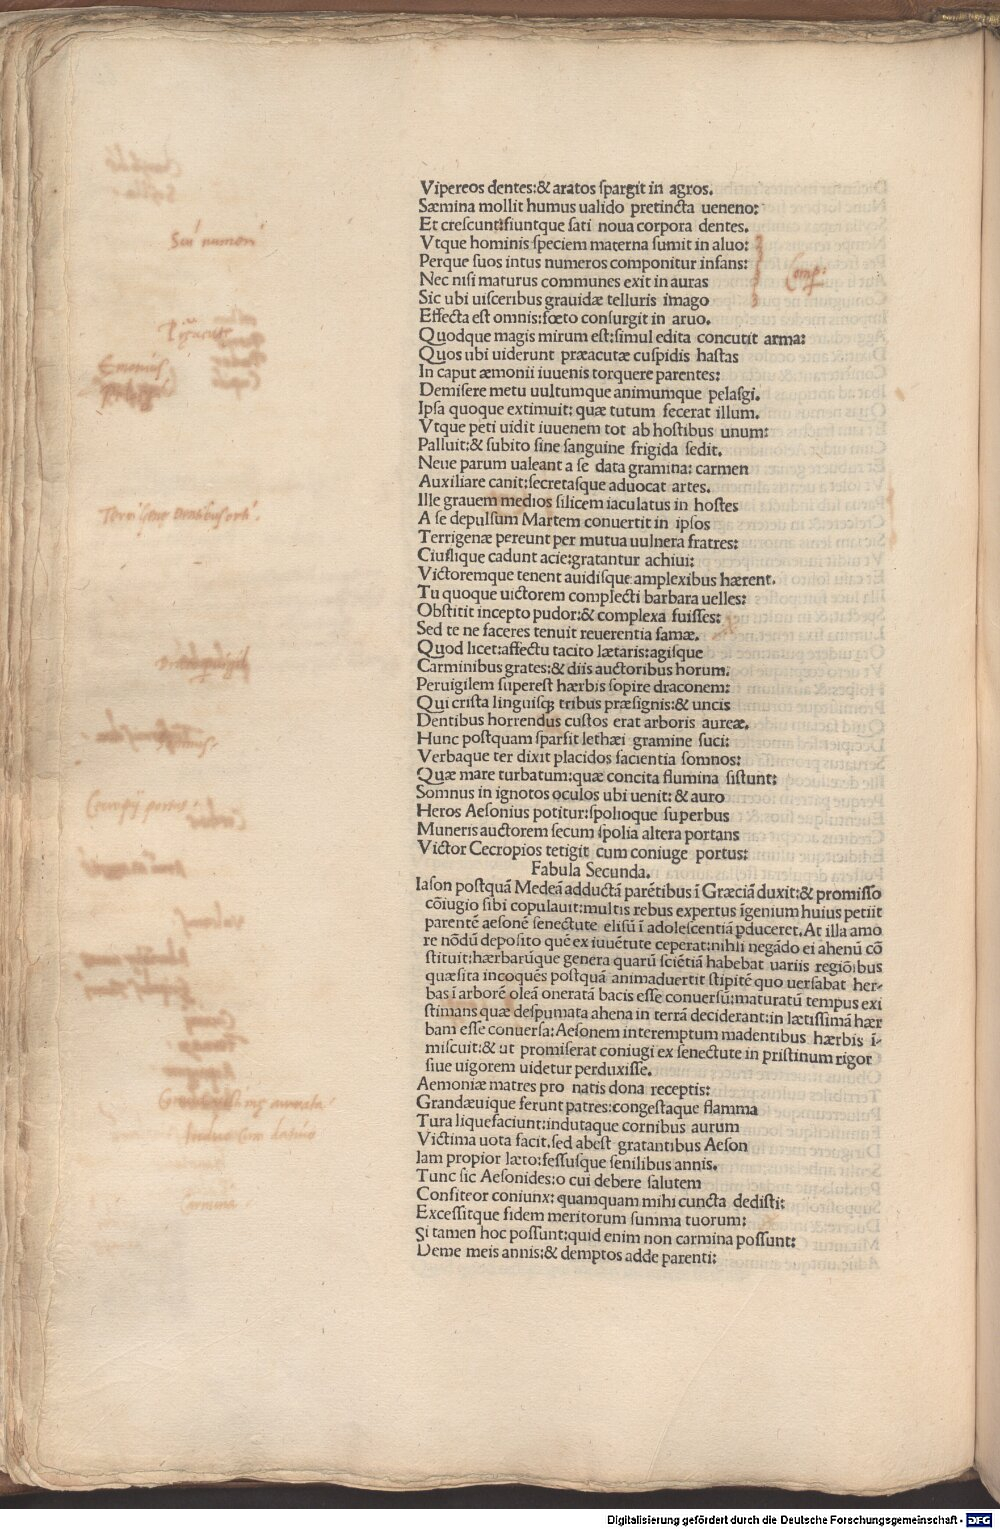 Vipereos dentes:& aratos ſpargit in agros.
Sæmina mollit humus ualido pretincta ueneno:
Et creſcunt:fiuntque ſati noua corpora dentes.
Vtque hominis ſpeciem materna ſumit in aluo:
Perque ſuos intus numeros componitur infans:
Nec niſi maturus communes exit in auras
Sic ubi uiſceribus grauidæ telluris imago
Effecta eſt omnis:fœto conſurgit in aruo.
Quodque magis mirum eſt:ſimul edita concutit arma:
Quos ubi uiderunt præacutæ cuſpidis haſtas
In caput æmonii iuuenis torquere parentes:
Demiſere metu uultumque animumque pelaſgi.
Ipſa quoque extimuit: quæ tutum fecerat illum.
Vtque peti uidit iuuenem tot ab hoſtibus unum:
Palluit:& ſubito ſine ſanguine frigida ſedit.
Neue parum ualeant a ſe data gramina: carmen
Auxiliare canit:ſecretaſque aduocat artes.
Ille grauem medios ſilicem iaculatus in hoſtes
A ſe depulſum Martem conuertit in ipſos
Terrigenæ pereunt per mutua uulnera fratres:
Ciuilique cadunt acie:gratantur achiui:
Victoremque tenent auidiſque amplexibus hærent.
Tu quoque uictorem complecti barbara uelles:
Obſtitit incepto pudor:& complexa fuiſſes:
Sed te ne faceres tenuit reuerentia famæ.
Quod licet:affectu tacito lætaris:agiſque
Carminibus grates:& diis auctoribus horum.
Peruigilem ſupereſt hærbis ſopire draconem:
Qui criſta linguiſqꝫ tribus præſignis:& uncis
Dentibus horrendus cuſtos erat arboris aureæ.
Hunc poſtquam ſparſit lethæi gramine ſuci:
Verbaque ter dixit placidos facientia ſomnos:
Quæ mare turbatum:quæ concita flumina ſiſtunt:
Somnus in ignotos oculos ubi uenit: & auro
Heros Aeſonius potitur:ſpolioque ſuperbus
Muneris auctorem ſecum ſpolia altera portans
Victor Cecropios tetigit cum coniuge portus:
Fabula Secunda.
Iaſon poſtquā Medeā adductā parētibus ī Græciā duxit:& promiſſo
cōiugio ſibi copulauit:multis rebus expertus īgenium huius petiit
parentē aeſonē ſenectute eliſū ī adoleſcentiā ꝑduceret. At illa amo
re nōdū depoſito quē ex iuuētute ceperat:nihil negādo ei ahenū cō
ſtituit:hærbarūque genera quarū ſciētiā habebat uariis regiōibus
quæſita incoquēs poſtquā animaduertit ſtipitē quo uerſabat her-
bas ī arborē oleā oneratā bacis eſſe conuerſū:maturatū tempus exi
ſtimans quæ deſpumata ahena in terrā deciderant:in lætiſſimā hær
bam eſſe conuerſa:Aeſonem interemptum madentibus hærbis ī-
miſcuit:& ut promiſerat coniugi ex ſenectute in priſtinum rigor
ſiue uigorem uidetur perduxiſſe.
Aemoniæ matres pro natis dona receptis:
Grandæuique ferunt patres:congeſtaque flamma
Tura liquefaciunt:indutaque cornibus aurum
Victima uota facit.ſed abeſt gratantibus Aeſon
Iam propior læto:feſſuſque ſenilibus annis.
Tunc ſic Aeſonides:o cui debere ſalutem
Confiteor coniunx: quamquam mihi cuncta dediſti:
Exceſſitque fidem meritorum ſumma tuorum:
Si tamen hoc poſſunt:quid enim non carmina poſſunt:
Deme meis annis:& demptos adde parenti:
Comp:
Digitalisierung gefördert durch die Deutsche Forschungsgemeinschaft - DFG